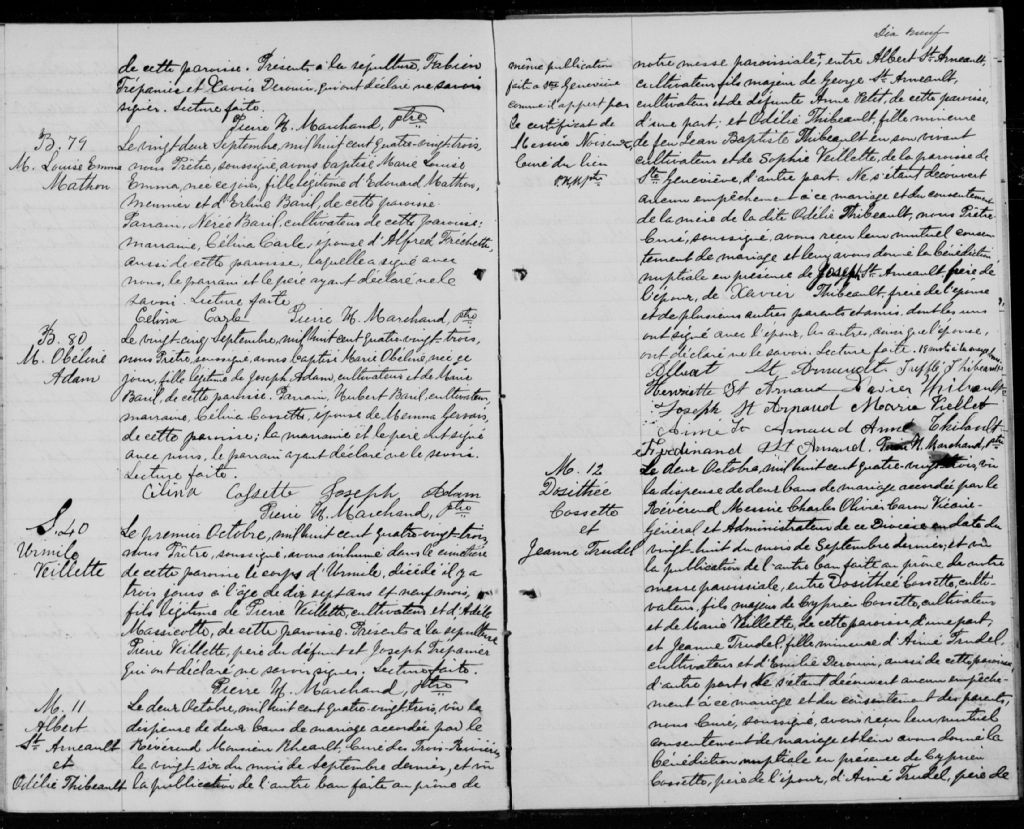 de cette paroisse. Présents à la sépulture, Fabien
Trépanier et Xavier Derouin, qui ont déclaré ne savoir
signer. Lecture faite.
Pierre H. Marchand, ptre
B. 79
M. Louise Emma
Mathon
Le vingt deux Septembre, mil huit cent quatre-vingt trois,
nous Prêtre, soussigné, avons baptisé Marie Louise
Emma, née ce jour, fille légitime d'Edouard Mathon,
meunier et d'Erline Baril, de cette paroisse.
Parrain, Nérée Baril, cultivateur de cette paroisse;
marraine, Célina Carle, épouse d'Alfred Fréchette,
aussi de cette paroisse, laquelle a signé avec
nous, le parrain et le père ayant déclaré ne le
savoir. Lecture faite
Célina Carle Pierre H. Marchand, ptre
B. 80
M. Obéline
Adam
Le vingt-cinq Septembre, mil huit cent quatre-vingt trois,
nous Prêtre, soussigné, avons baptisé Marie Obéline, née ce
jour, fille légitime de Joseph Adam, cultivateur et de Marie
Baril, de cette paroisse. Parrain, Hubert Baril, cultivateur,
marraine, Célina Cossette, épouse de Memma Gervais,
de cette paroisse; la marraine et le père ont signé
avec nous, le parrain ayant déclaré ne le savoir.
Lecture faite.
Celina Cossette Joseph Adam
Pierre H. Marchand, ptre
S. 40
Urmile
Veillette
Le premier Octobre, mil huit cent quatre-vingt trois,
nous Prêtre, soussigné, avons inhumé dans le cimetière
de cette paroisse le corps d'Urmile, décédé il y a
trois jours à l'âge de dix sept ans et neuf mois,
fils légitime de Pierre Veillette, cultivateur et d'Adèle
Massicotte, de cette paroisse. Présents à la sépulture
Pierre Veillette, père du défunt et Joseph Trépanier
qui ont déclaré ne savoir signer. Lecture faite.
Pierre H. Marchand, ptre
M. 11
Albert
St. Arneault
et
Odélie Thibeault
Le deux Octobre, mil huit cent quatre-vingt trois, vu la
dispense de deux bans de mariage accordée par le
Révérend Monsieur Rheault, Curé des Trois-Rivières
le vingt six du mois de Septembre dernier, et vu
la publication de l'autre ban faite au prône de
même publication
faite à Ste Geneviève
comme il appert par
le certificat de
Messire Noiseux
Curé du lieu
P.H.M. ptre
notre messe paroissiale, entre Albert St. Arneault,
cultivateur, fils majeur de George St. Arneault,
cultivateur et de défunte Anne Petit, de cette paroisse,
d'une part; et Odélie Thibeault, fille mineure
de feu Jean Baptiste Thibeault en son vivant
cultivateur et de Sophie Veillette, de la paroisse de
Ste. Geneviève, d'autre part. Ne s'étant découvert
aucun empêchement à ce mariage et du consentement
de la mère de la dite Odélie Thibeault, nous Prêtre
Curé, soussigné, avons reçu leur mutuel consen-
tement de mariage et leur avons donné la bénédiction
nuptiale en présence de Joseph St. Arneault, frère de
l'époux, de Xavier Thibeault, frère de l'épouse
et de plusieurs autres parents et amis, dont les uns
ont signé avec l'époux, les autres, ainsi que l'épouse,
ont déclaré ne le savoir. Lecture faite.
Albert St Arneault Thibeault
Henriette St Arnaud Xavier Thibeault
Joseph St Arnaud Marie Veillet
Aimé St Arnaud Anne Thibault
Ferdinand St Arnaud Pierre H. Marchand, Ptre
M. 12
Dosithée
Cossette
et
Jeanne Trudel
Le deux Octobre, mil huit cent quatre-vingt trois, vu
la dispense de deux bans de mariage accordée par le
Révérend Messire Charles Olivier Caron Vicaire-
Général et Administrateur de ce Diocèse en date du
vingt huit du mois de Septembre dernier, et vu
la publication de l'autre ban faite au prône de notre
messe paroissiale, entre Dosithée Cossette, culti-
vateur, fils majeur de Cyprien Cossette, cultivateur
et de Marie Veillette, de cette paroisse d'une part,
et Jeanne Trudel, fille mineure d'Aimé Trudel
cultivateur et d'Emilie Derouin, aussi de cette paroisse,
d'autre part, ne s'étant découvert aucun empêche-
ment à ce mariage et du consentement des parents,
nous Curé, soussigné, avons reçu leur mutuel
consentement de mariage et leur avons donné la
bénédiction nuptiale en présence de Cyprien
Cossette, père de l'époux, d'Aimé Trudel, père de